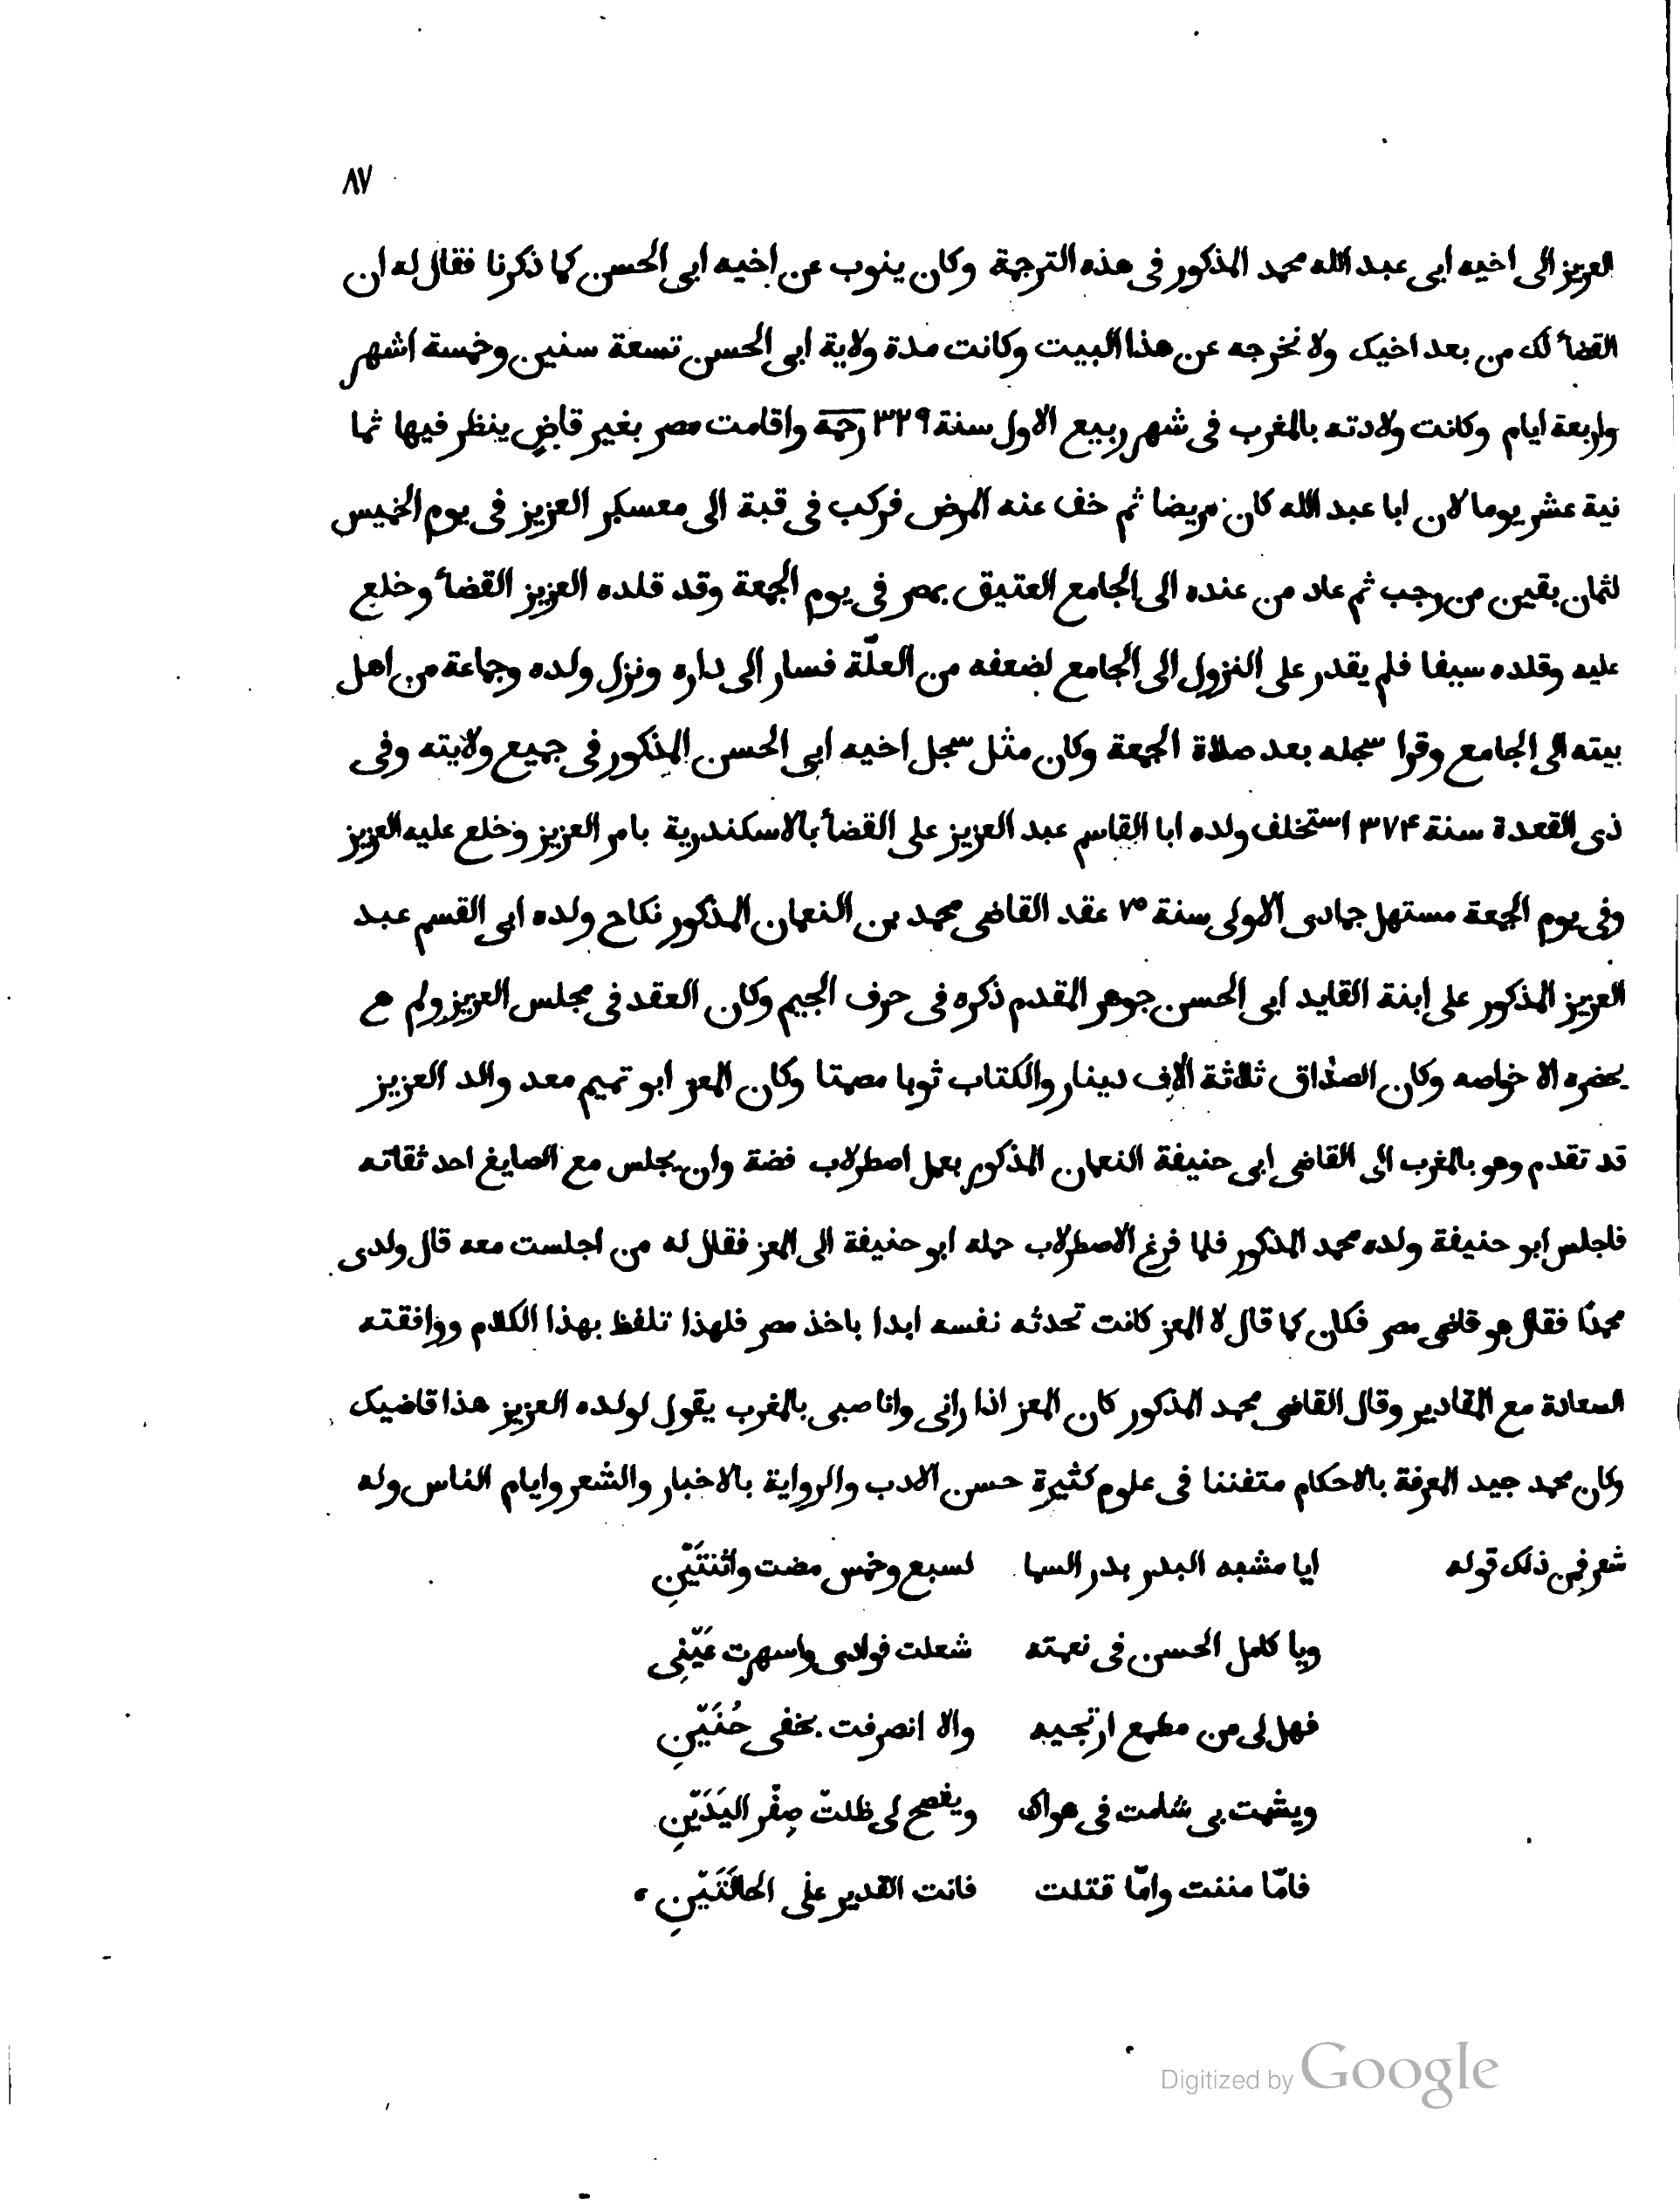 ٨٧
العزيز الى اخيه ابى عبد الله محمد المذكور فى هذه الترجمة وكان ينوب عن اخيه ابى الحسن كما ذكرنا فقال له ان
القضأ لك من بعد اخيك ولا نخرجه عن هذا البيت وكانت مدة ولاية ابى الحسن تسعة سنين وخمسة اشهر
واربعة ايام وكانت ولادته بالمغرب فى شهر ربيع الاول سنة ٣٢٩ رحمة واقامت مصر بغير قاضٍ ينظر فيها ثما
نية عشر يوما لان ابا عبد الله كان مريضا ثم خف عنه المرض فركب فى قبة الى معسكر العزيز فى يوم الخميس
لثمان بقين من رجب ثم عاد من عنده الى الجامع العتيق بمصر فى يوم الجمعة وقد قلده العزيز القضأ وخلع
عليه وقلده سيفا فلم يقدر على النزول الى الجامع لضعفه من العلّة فسار الى داره ونزل ولده وجماعة من اهل
بيته الى الجامع وقرا سجله بعد صلاة الجمعة وكان مثل سجل اخيه ابى الحسن المذكور فى جميع ولايته وفى
ذى القعدة سنة ٣٧٤ استخلف ولده ابا القاسم عبد العزيز على القضأ بالاسكندرية بامر العزيز وخلع عليه العزيز
وفى يوم الجمعة مستهل جمادى الاولى سنة ٧٥ عقد القاضى محمد بن النعمان المذكور نكاح ولده ابى القسم عبد
العزيز المذكور على ابنة القايد ابى الحسن جوهر المقدم ذكره فى حرف الجيم وكان العقد فى مجلس العزيز ولم هع
يحضره الا خواصه وكان الصداق ثلاثة الاف دينار والكتاب ثوبا مصمتا وكان المعز ابو تميم معد والد العزيز
قد تقدم وهو بالمغرب الى القاضى ابى حنيفة النعمان المذكور بعمل اصطرلاب فضة وان يجلس مع الصايغ احد ثقاته
فاجلس ابو حنيفة ولده محمد المذكور فلما فرغ الاصطرلاب حمله ابو حنيفة الى المعز فقال له من اجلست معه قال ولدى
محمدًا فقال هو قاضى مصر فكان كما قال لا المعز كانت تحدثه نفسه ابدا باخذ مصر فلهذا تلفظ بهذا الكلام ووافقته
السعادة مع المقادير وقال القاضى محمد المذكور كان المعز اذا رانى وانا صبى بالمغرب يقول لولده العزيز هذا قاضيك
وكان محمد جيد المعرفة بالاحكام متفننا فى علوم كثيرة حسن الادب والرواية بالاخبار والشعر وايام الناس وله
شعر فمن ذلك قوله ايا مشبه البدر بدر السما لسبع وخمس مضت واثنتَيْنِ
ويا كامل الحسن فى نعمته شعلت فوادى واسهرت عَيْنِى
فهل لى من مطمع ارتجيه والا انصرفت بخفى حُنَيْنِ
ويشمت بى شامت فى هواك ويفصح لى ظلت صِفْر اليَدَيْنِ
فامّا مننت وامّا قتلت فانت القدير على الحالَتَيْنِ
Digitized by Google